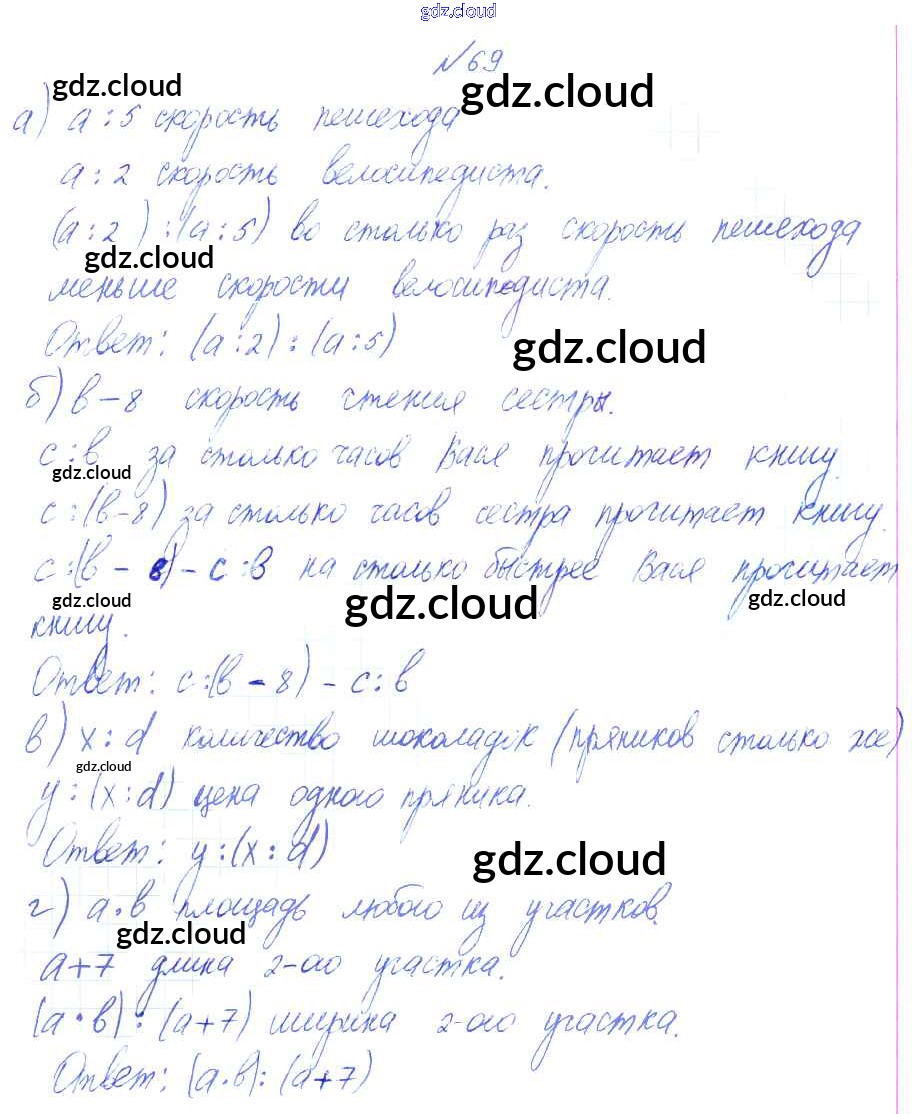 gdz.cloud
№69
gdz.cloud gdz.cloud
а) a : 5 скорость пешехода
a : 2 скорость велосипедиста.
(a : 2) : (a : 5) во столько раз скорость пешехода
gdz.cloud
меньше скорости велосипедиста.
Ответ: (a : 2) : (a : 5)
gdz.cloud
б) в - 8 скорость чтения сестры.
c : в за столько часов Вася прочитает книгу.
gdz.cloud
c : (в - 8) за столько часов сестра прочитает книгу.
c : (в - 8) - c : в на столько быстрее Вася прочитает
gdz.cloud gdz.cloud gdz.cloud
книгу.
Ответ: c : (в - 8) - c : в
в) x : d количество шоколадок (пряников столько же)
gdz.cloud
y : (x : d) цена одного пряника.
Ответ: y : (x : d)
gdz.cloud
г) a · в площадь любого из участков.
gdz.cloud
a + 7 длина 2-ого участка.
(a · в) : (a + 7) ширина 2-ого участка.
Ответ: (a · в) : (a + 7)